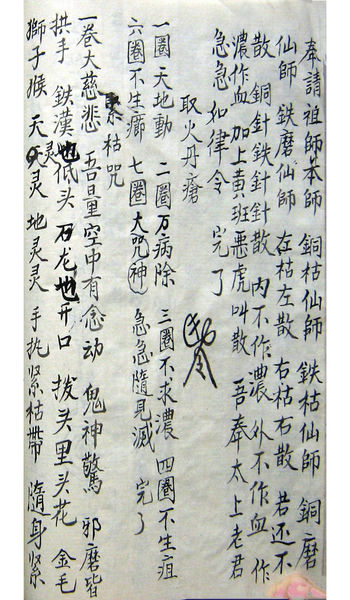 奉請祖師本師 銅枯仙師 鉄枯仙師 銅磨
仙師 鉄磨仙師 在枯左散 右枯右散 若还不
散 銅針鉄針針散 内不作濃 外不作血 作
濃作血 加上黄班悪虎叫散 吾奉太上老君
急急如律令 完了
取火丹瘡
一圈天地動 二圈万病除 三圈不求濃 四圈不生疽
六圈不生瘹 七圈大咒神 急急隨見滅 完了
枯咒
一卷大慈悲 吾量空中有念动 鬼神驚 邪磨皆
拱手 鉄漢也低头 石龙也开口 拔头里头花 金毛
獅子猴 天灵灵 地灵灵 手扥紧枯帶 隨身紧